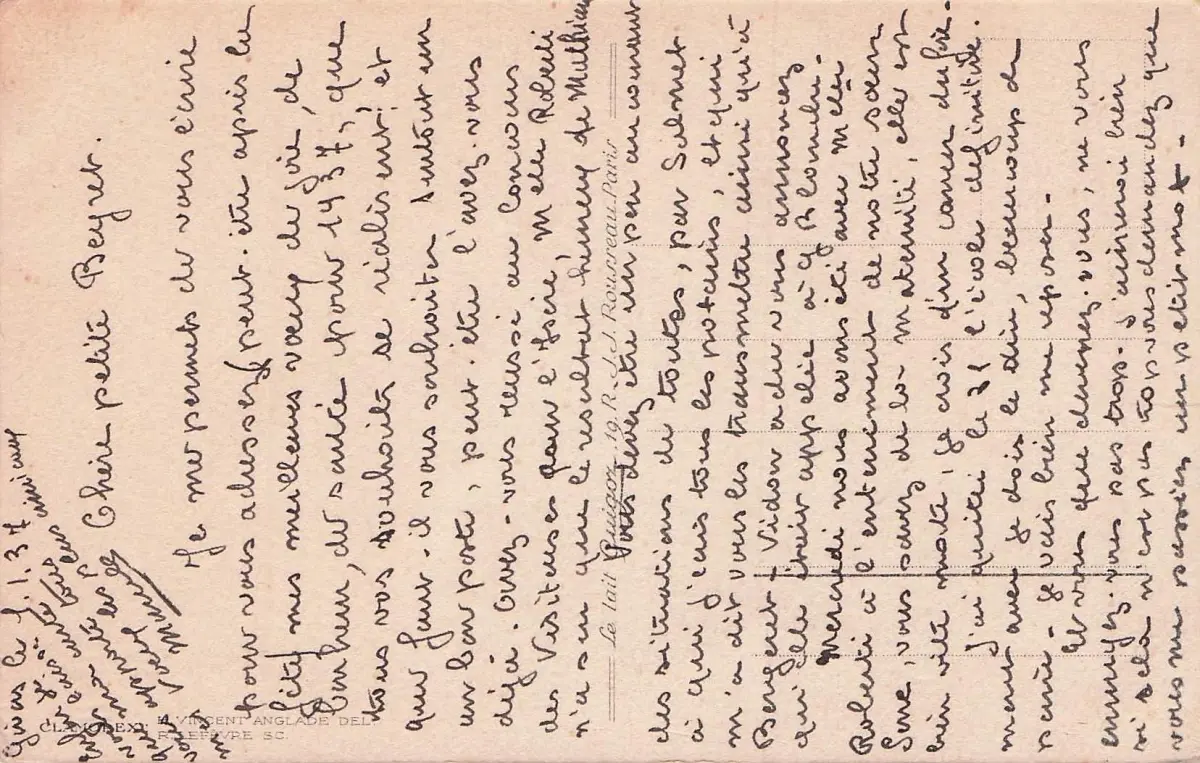 Givas le 5.1.37
Chère petite Beyret.
Je me permets de vous écrire
pour vous adresser (peut-être après la
fête) mes meilleurs vœux de joie, de
bonheur, de santé pour 1937, que
tous vos souhaits se réalisent! et
que faut-il vous souhaiter surtout un
un bon poste, peut-être l'avez-vous
déjà. Avez-vous réussi au concours
des Visiteuses pour l'Isère, Melle Roberti
n'a su que le résultat heureux de Mathieu
Vous devez être un peu au courant
des situations de toutes, par Sulmet
à qui j'envoie tous les potains, et qui
m'a dit vous les transmettre ainsi qu'à
Bengeret - Vidon a du vous annoncez
qu'elle était appelée à Plombi-
Mercredi nous avons été avec Melle
Roberti à l'enterrement de notre sœur
Sene, vous savez de la maternité, elle est
bien vite morte, je crois d'un cancer du foie.
J'ai quitté le 31 l'école définitive-
ment avec je dois le dire, beaucoup de
peine - Je vais bien me reposer -
Et vous que devenez-vous, ne vous
ennuyez-vous pas trop. J'aimerai bien
si cela n'est pas trop vous demandez que
vous me passiez un petit mot -
Le lait Guigoz, 19, R. J.-J. Rousseau, Paris
H. VINCENT ANGLADE DEL.
R. LEFEVRE SC.